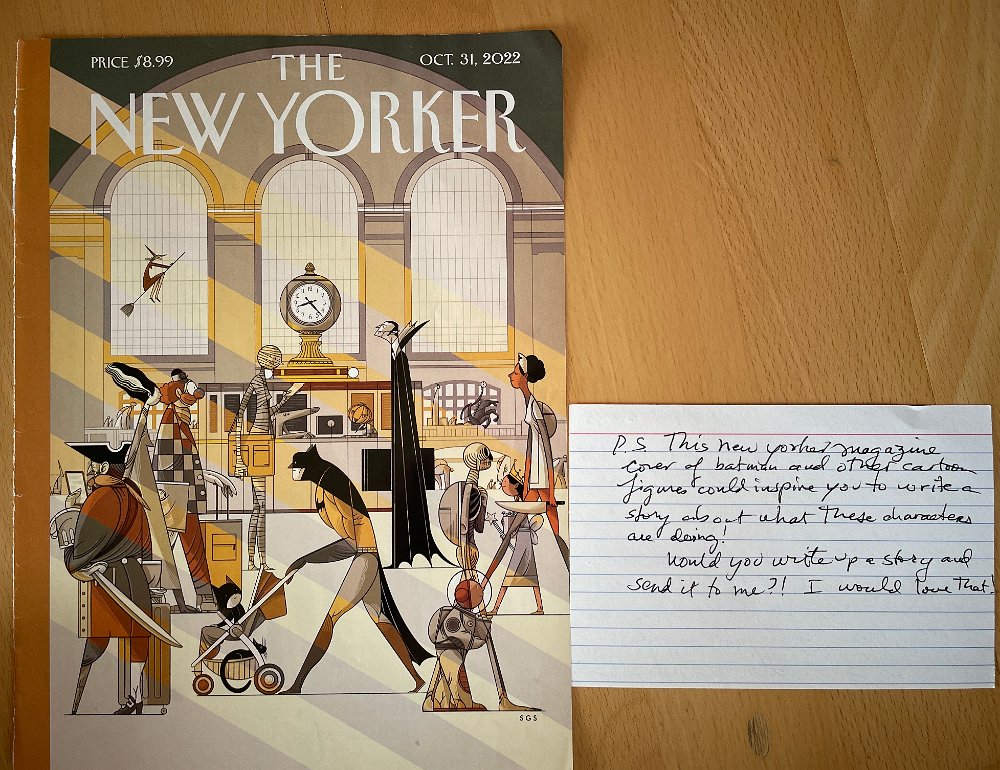 PRICE $8.99
OCT. 31, 2022
THE
NEW YORKER
SGS
P.S. This new yorker magazine
cover of batman and other cartoon
figures could inspire you to write a
story about what these characters
are doing!
Would you write up a story and
send it to me?! I would love that.